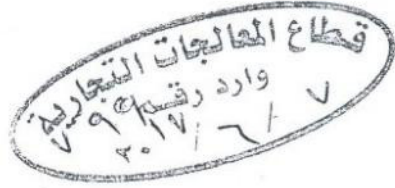 قطاع المعالجات التجارية
وارد رقم
٧ / ٦ / ٢٠١٧